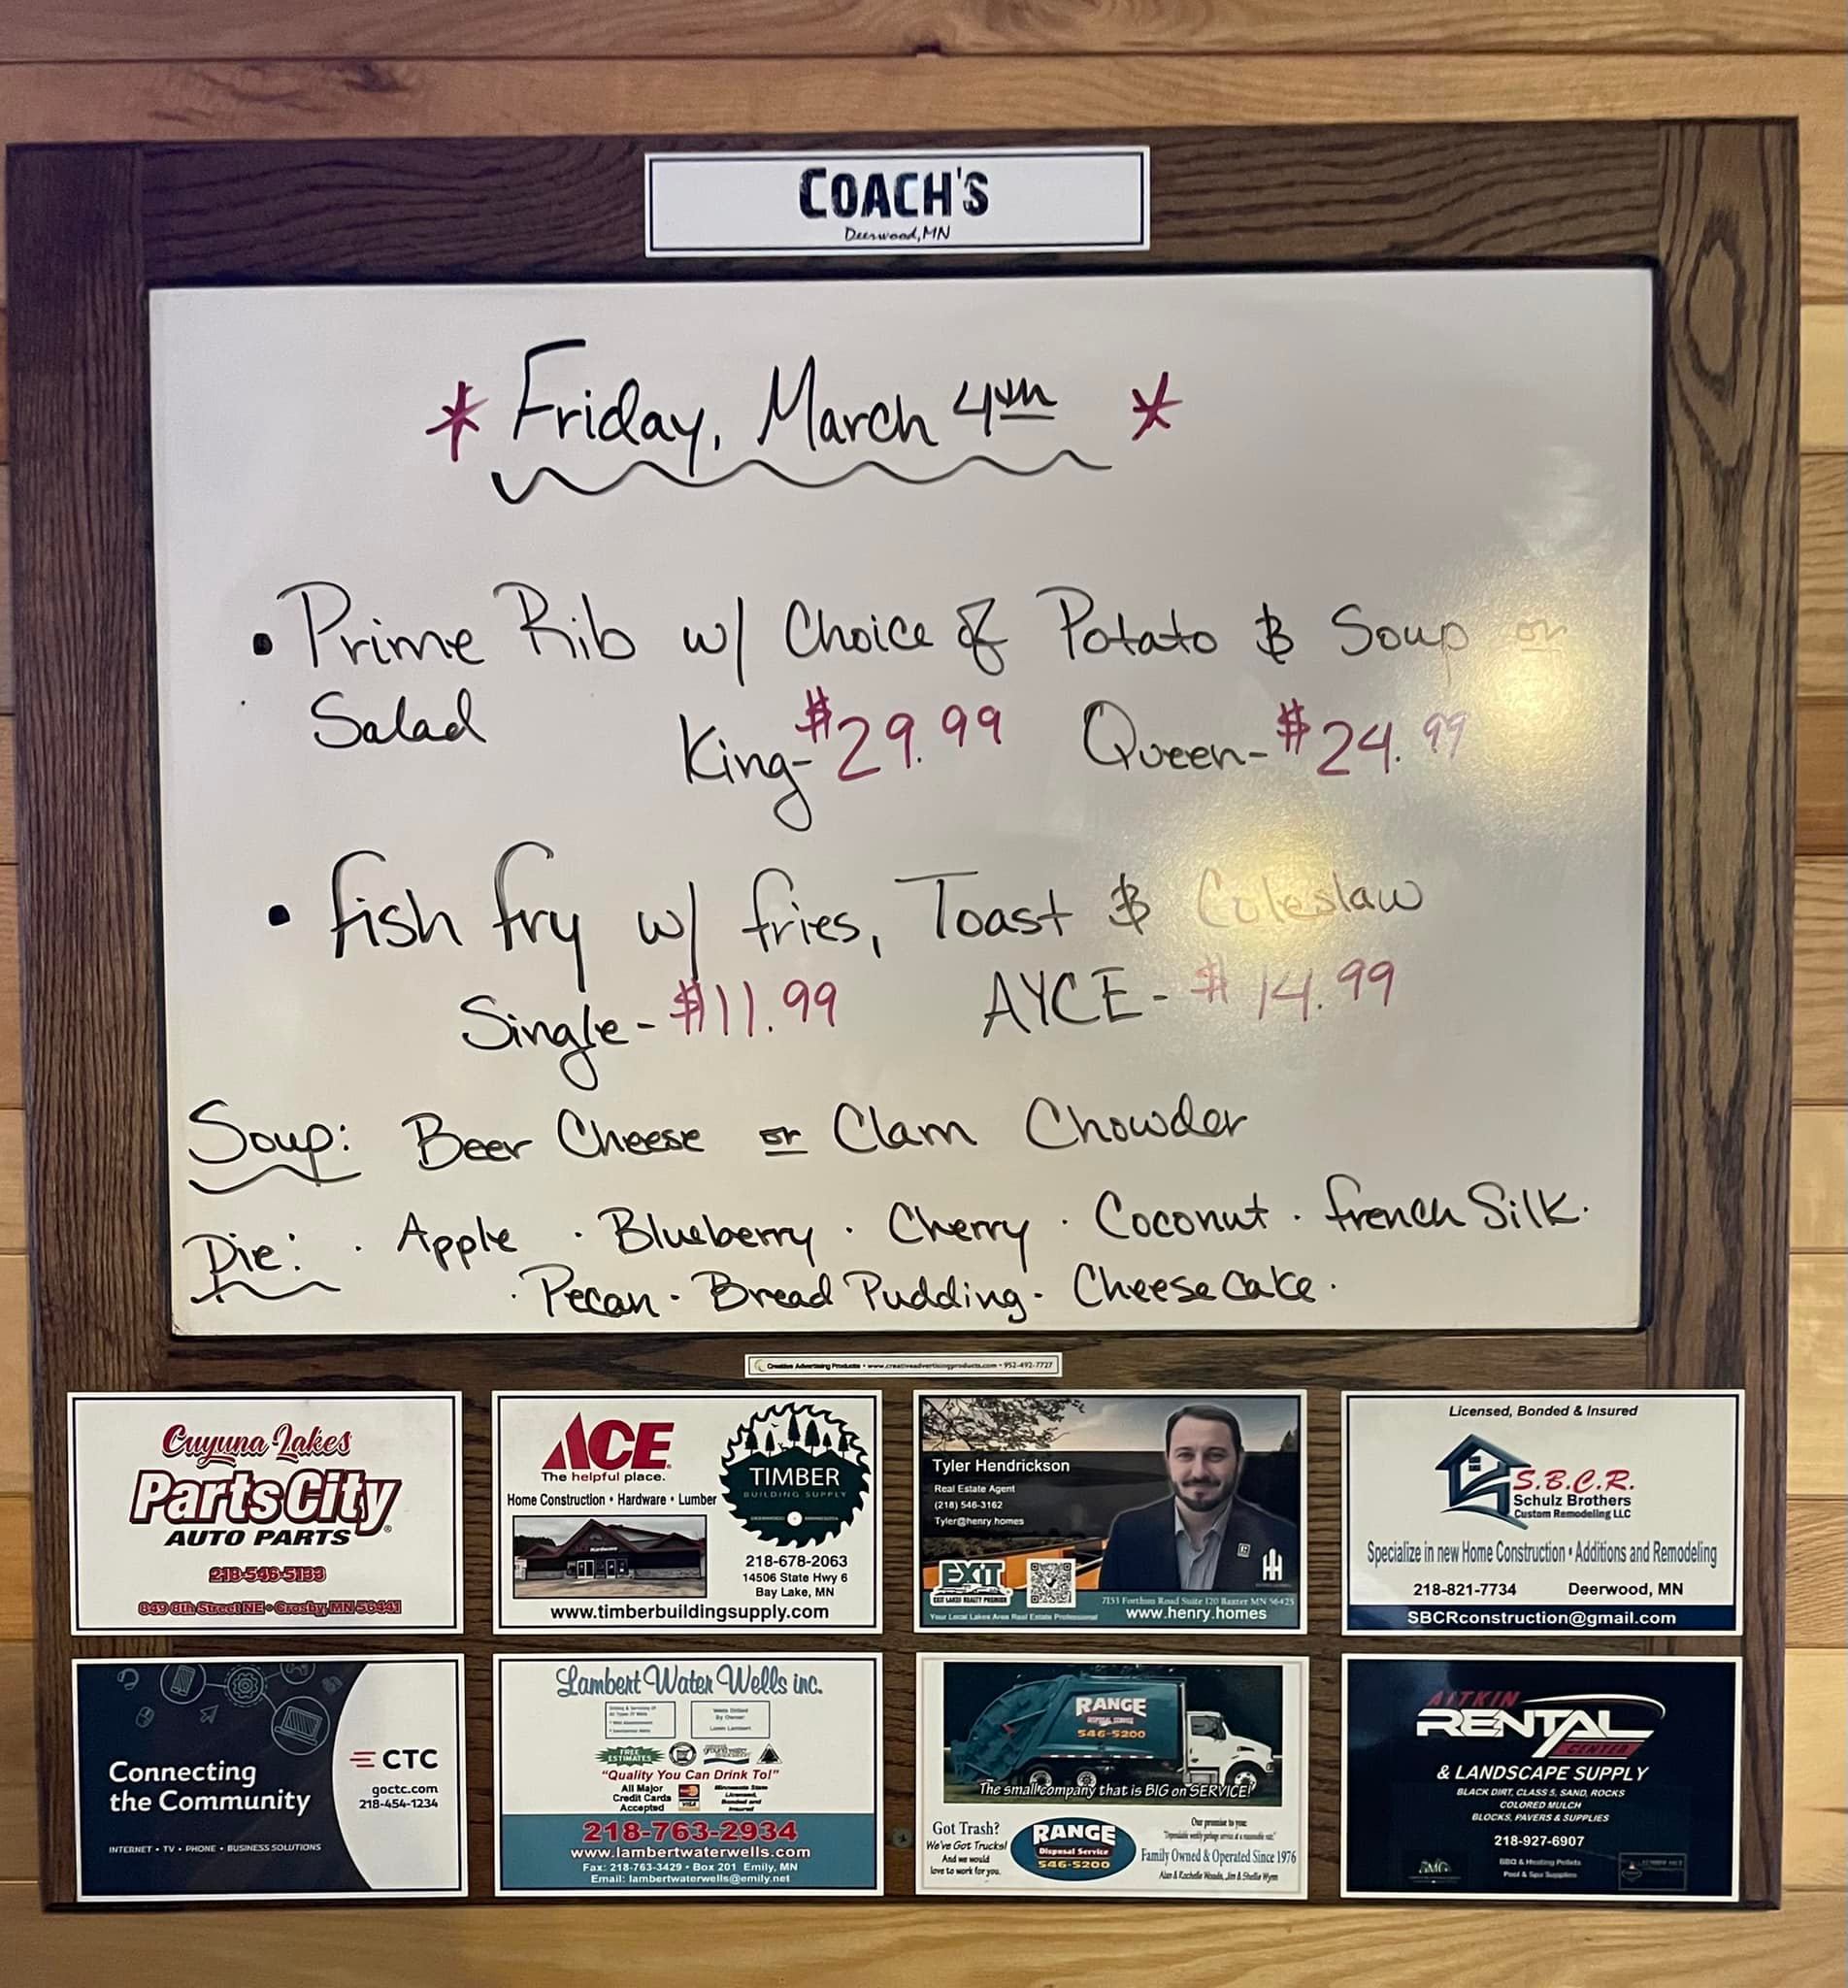 COACH'S
Deerwood, MN
* Friday, March 4th *
• Prime Rib w/ Choice of Potato & Soup or
Salad King-$29.99 Queen-$24.99
• Fish Fry w/ fries, Toast & Coleslaw
Single-$11.99 AYCE-$14.99
Soup: Beer Cheese or Clam Chowder
Pie: · Apple · Blueberry · Cherry · Coconut · French Silk ·
· Pecan · Bread Pudding · Cheese Cake ·
Creative Advertising Products • www.creativeadvertisingproducts.com • 952-492-7727
Cuyuna Lakes
Parts City
AUTO PARTS
218-546-5133
849 8th Street NE • Crosby, MN 56441
ACE
The helpful place.
Home Construction • Hardware • Lumber
TIMBER
BUILDING SUPPLY
Hardware
218-678-2063
14506 State Hwy 6
Bay Lake, MN
www.timberbuildingsupply.com
Tyler Hendrickson
Real Estate Agent
(218) 546-3162
Tyler@henry.homes
EXIT
EXIT LAKES REALTY PREMIER
7153 Forthun Road Suite 120 Baxter MN 56425
Your Local Lakes Area Real Estate Professional
www.henry.homes
Licensed, Bonded & Insured
S.B.C.R.
Schulz Brothers
Custom Remodeling LLC
Specialize in new Home Construction • Additions and Remodeling
218-821-7734 Deerwood, MN
SBCRconstruction@gmail.com
Connecting
the Community
INTERNET • TV • PHONE • BUSINESS SOLUTIONS
CTC
goctc.com
218-454-1234
Lambert Water Wells inc.
Wells Drilled
By Owner
Loren Lambert
FREE
ESTIMATES
"Quality You Can Drink To!"
All Major
Credit Cards
Accepted
Minnesota State
Licensed,
Bonded and
Insured
218-763-2934
www.lambertwaterwells.com
Fax: 218-763-3429 • Box 201 Emily, MN
Email: lambertwaterwells@emily.net
RANGE
DISPOSAL SERVICE
546-5200
The small company that is BIG on SERVICE!
Got Trash?
We've Got Trucks!
And we would
love to work for you.
RANGE
Disposal Service
546-5200
Our promise to you:
"Dependable weekly garbage service at a reasonable rate."
Family Owned & Operated Since 1976
AITKIN
RENTAL
CENTER
& LANDSCAPE SUPPLY
BLACK DIRT, CLASS 5, SAND, ROCKS
COLORED MULCH
BLOCKS, PAVERS & SUPPLIES
218-927-6907
BBQ & Heating Pellets
Pool & Spa Supplies